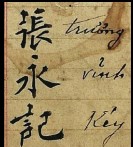 張 trương
永 vĩnh
記 Kéy